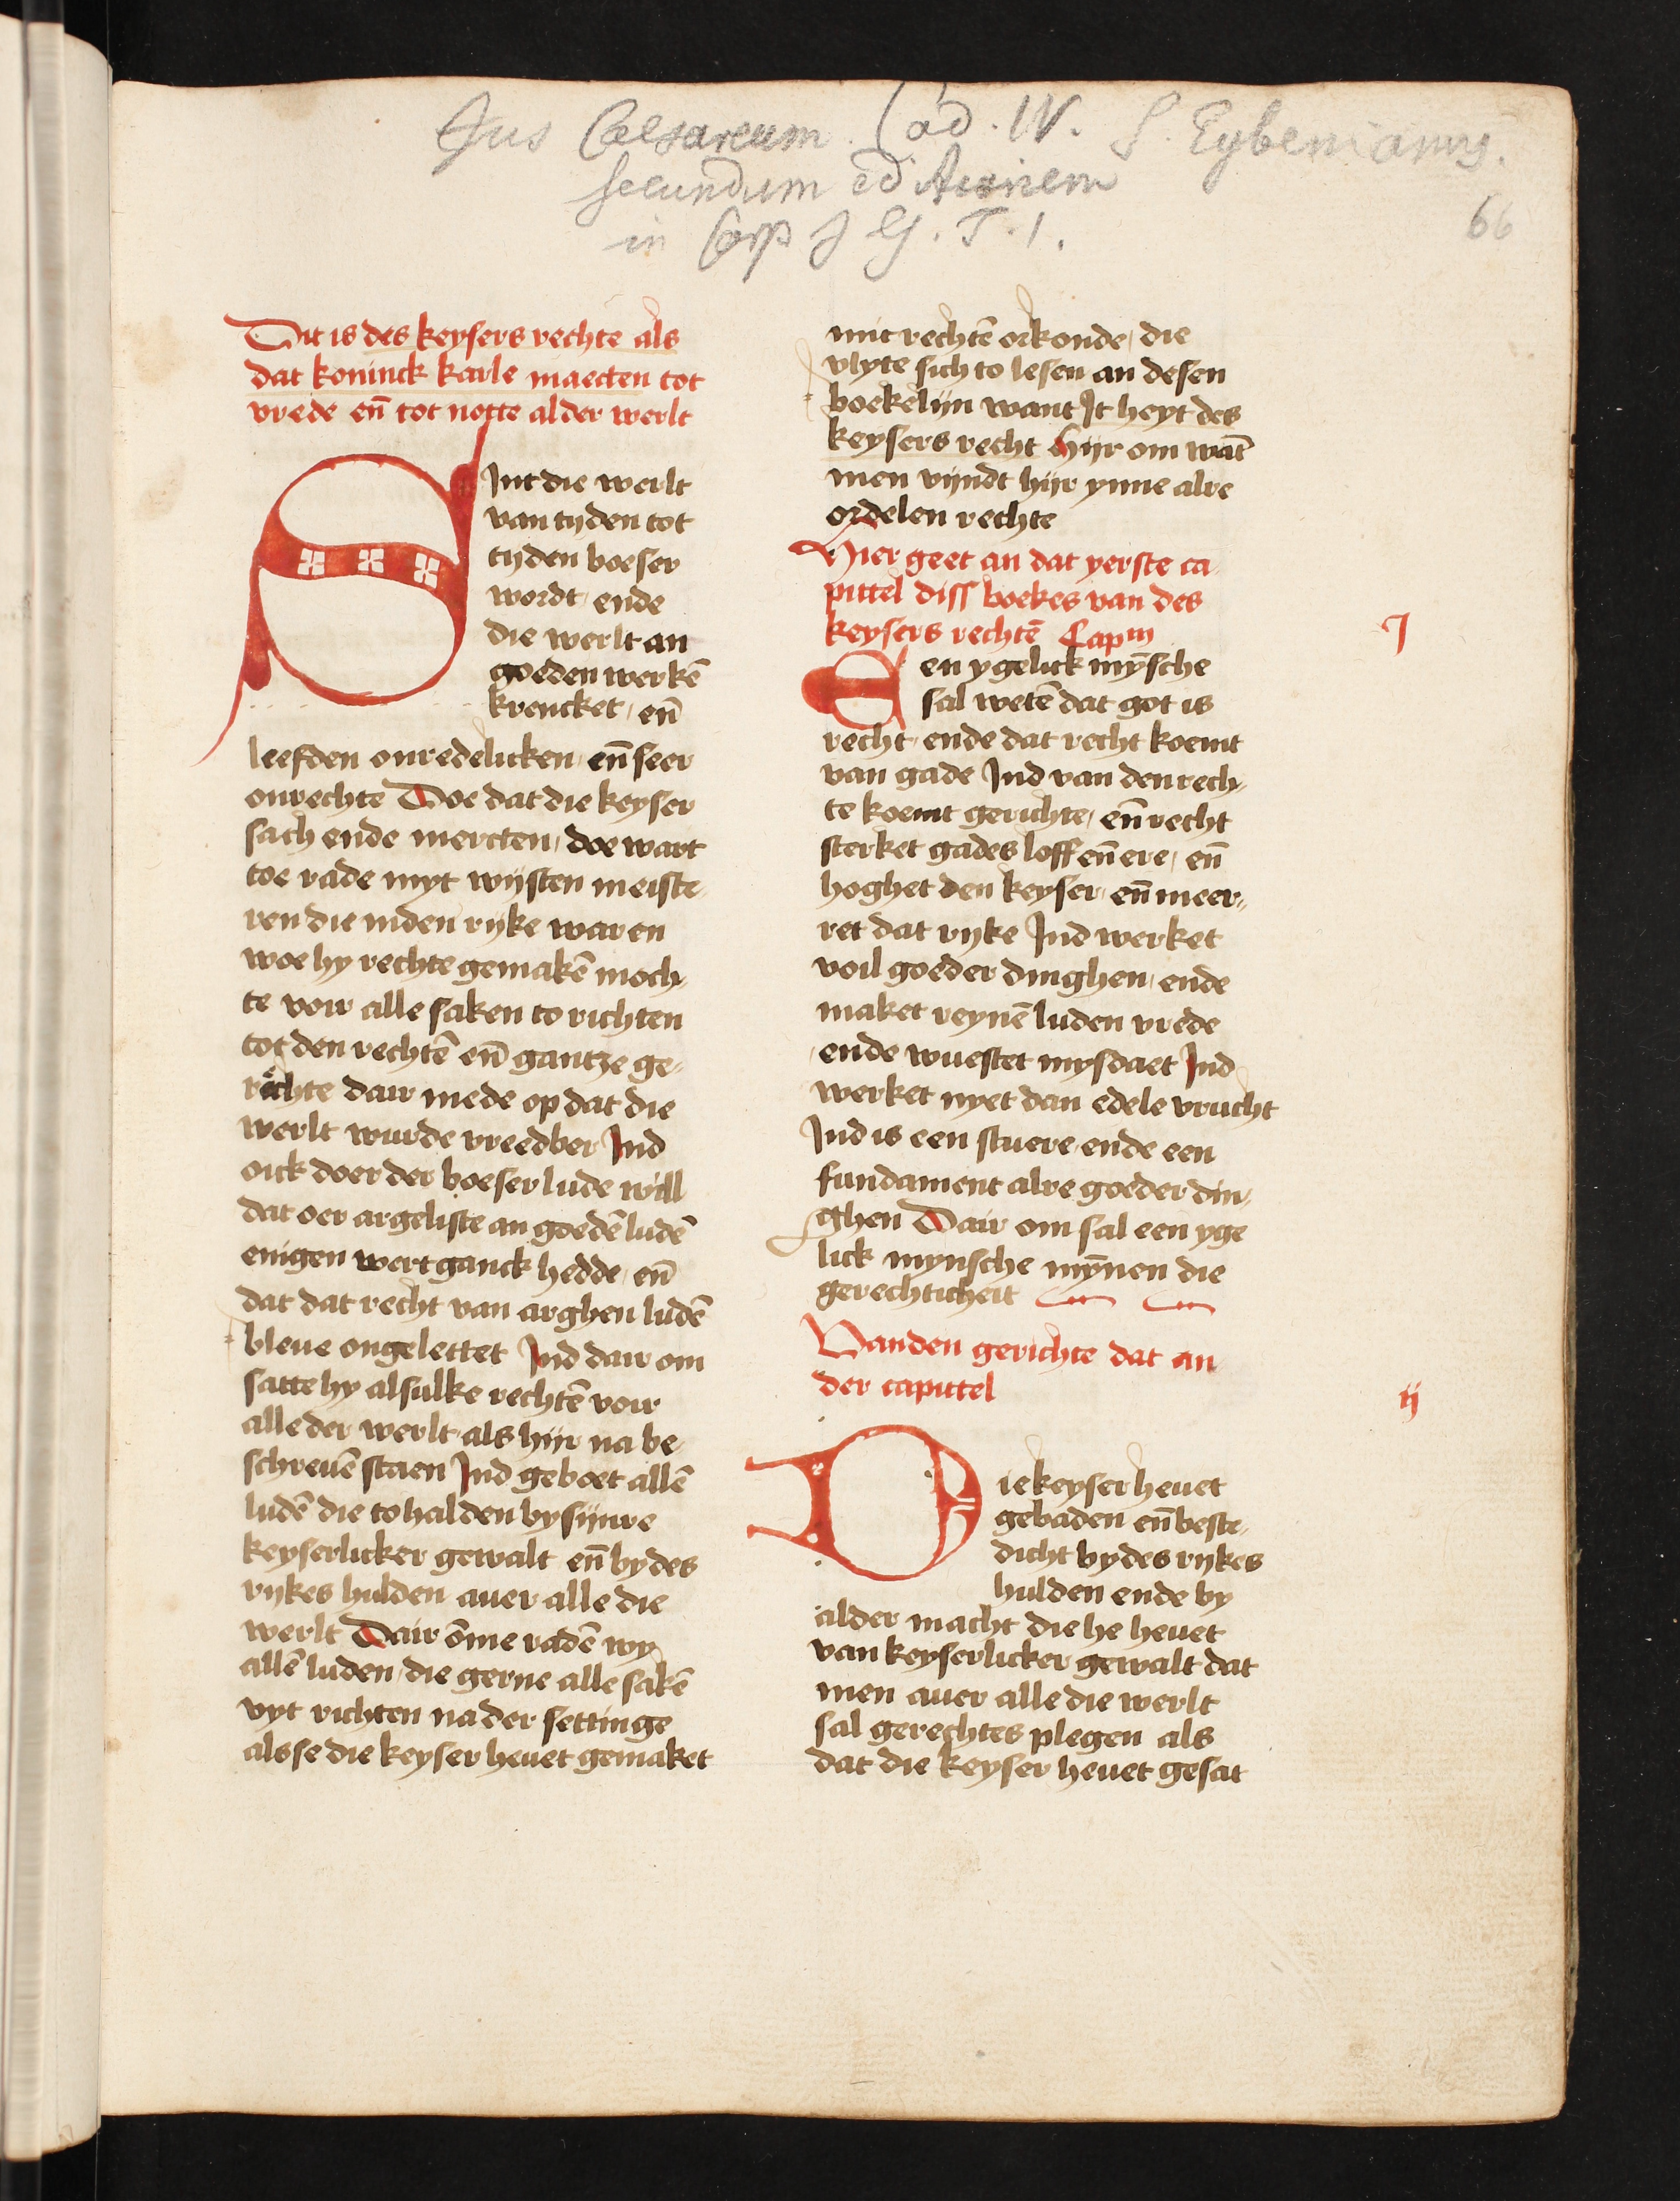 Jus Caesareum. Cod. IV. S. Eybenianus.
secundum editionem
in Corp J G. T. 1.
66
Dit is des keysers rechte als
dat koninck karle maecten tot
vrede eñ tot notte alder werlt
SJnt die werlt
van tyden tot
tyden boeser
wordt ende
die werlt an
goeden werkē
krencket, eñ
leefden onredelicken eñ seer
onrechte Doe dat die keyser
sach ende mercten, doe wart
toe rade myt wijsten meiste
ren die inden rijke waren
woe hy rechte gemakē moch
te voir alle saken to richten
tot den rechtē eñ gantze ge
rechte dair mede op dat die
werlt wurde vreedber Jnd
oick doer der boeser lude will
dat oer argeliste an goedē ludē
enigen wert ganck hedde, eñ
dat dat recht van arghen ludē
bleue ongelettet Jnd dair om
satte hy alsulke rechtē voir
alle der werlt als hijr na be
schreuē staen Jnd geboet allē
ludē die to halden by sijnre
keyserlicker gewalt eñ by des
rijkes hulden auer alle die
werlt Dair ōme radē wy
allē luden, die gerne alle sakē
vyt richten na der settinge
als se die keyser heuet gemaket
mit rechtē orkonde, die
vlyte sich to lesen an desen
boekelijn want Jt heyt des
keysers recht Hijr om wāt
men vijndt hijr ynne alre
ordelen rechte
Hier geet an dat yerste ca
pittel diss boekes van des
keysers rechtē Capm
J
Een ygelick mȳsche
sal wetē dat got is
recht, ende dat recht koemt
van gade Jnd van den rech
te koemt gerichte, eñ recht
sterket gades loff eñ ere, eñ
hoghet den keyser, eñ meer
ret dat rijke Jnd werket
voil goeder dinghen, ende
maket reynē luden vrede
ende wuestet mysdaet Jnd
werket nyet dan edele vrucht
Jnd is een stuere ende een
fundament alre goeder din
ghen Dair om sal een yge
lick mynsche mȳnen die
gerechticheit
Vanden gerichte dat an
der capittel
ij
Die keyser heuet
gebaden eñ beste
dicht by des rijkes
hulden ende by
alder macht die he heuet
van keyserlicker gewalt dat
men auer alle die werlt
sal gerechtes plegen als
dat die keyser heuet gesat